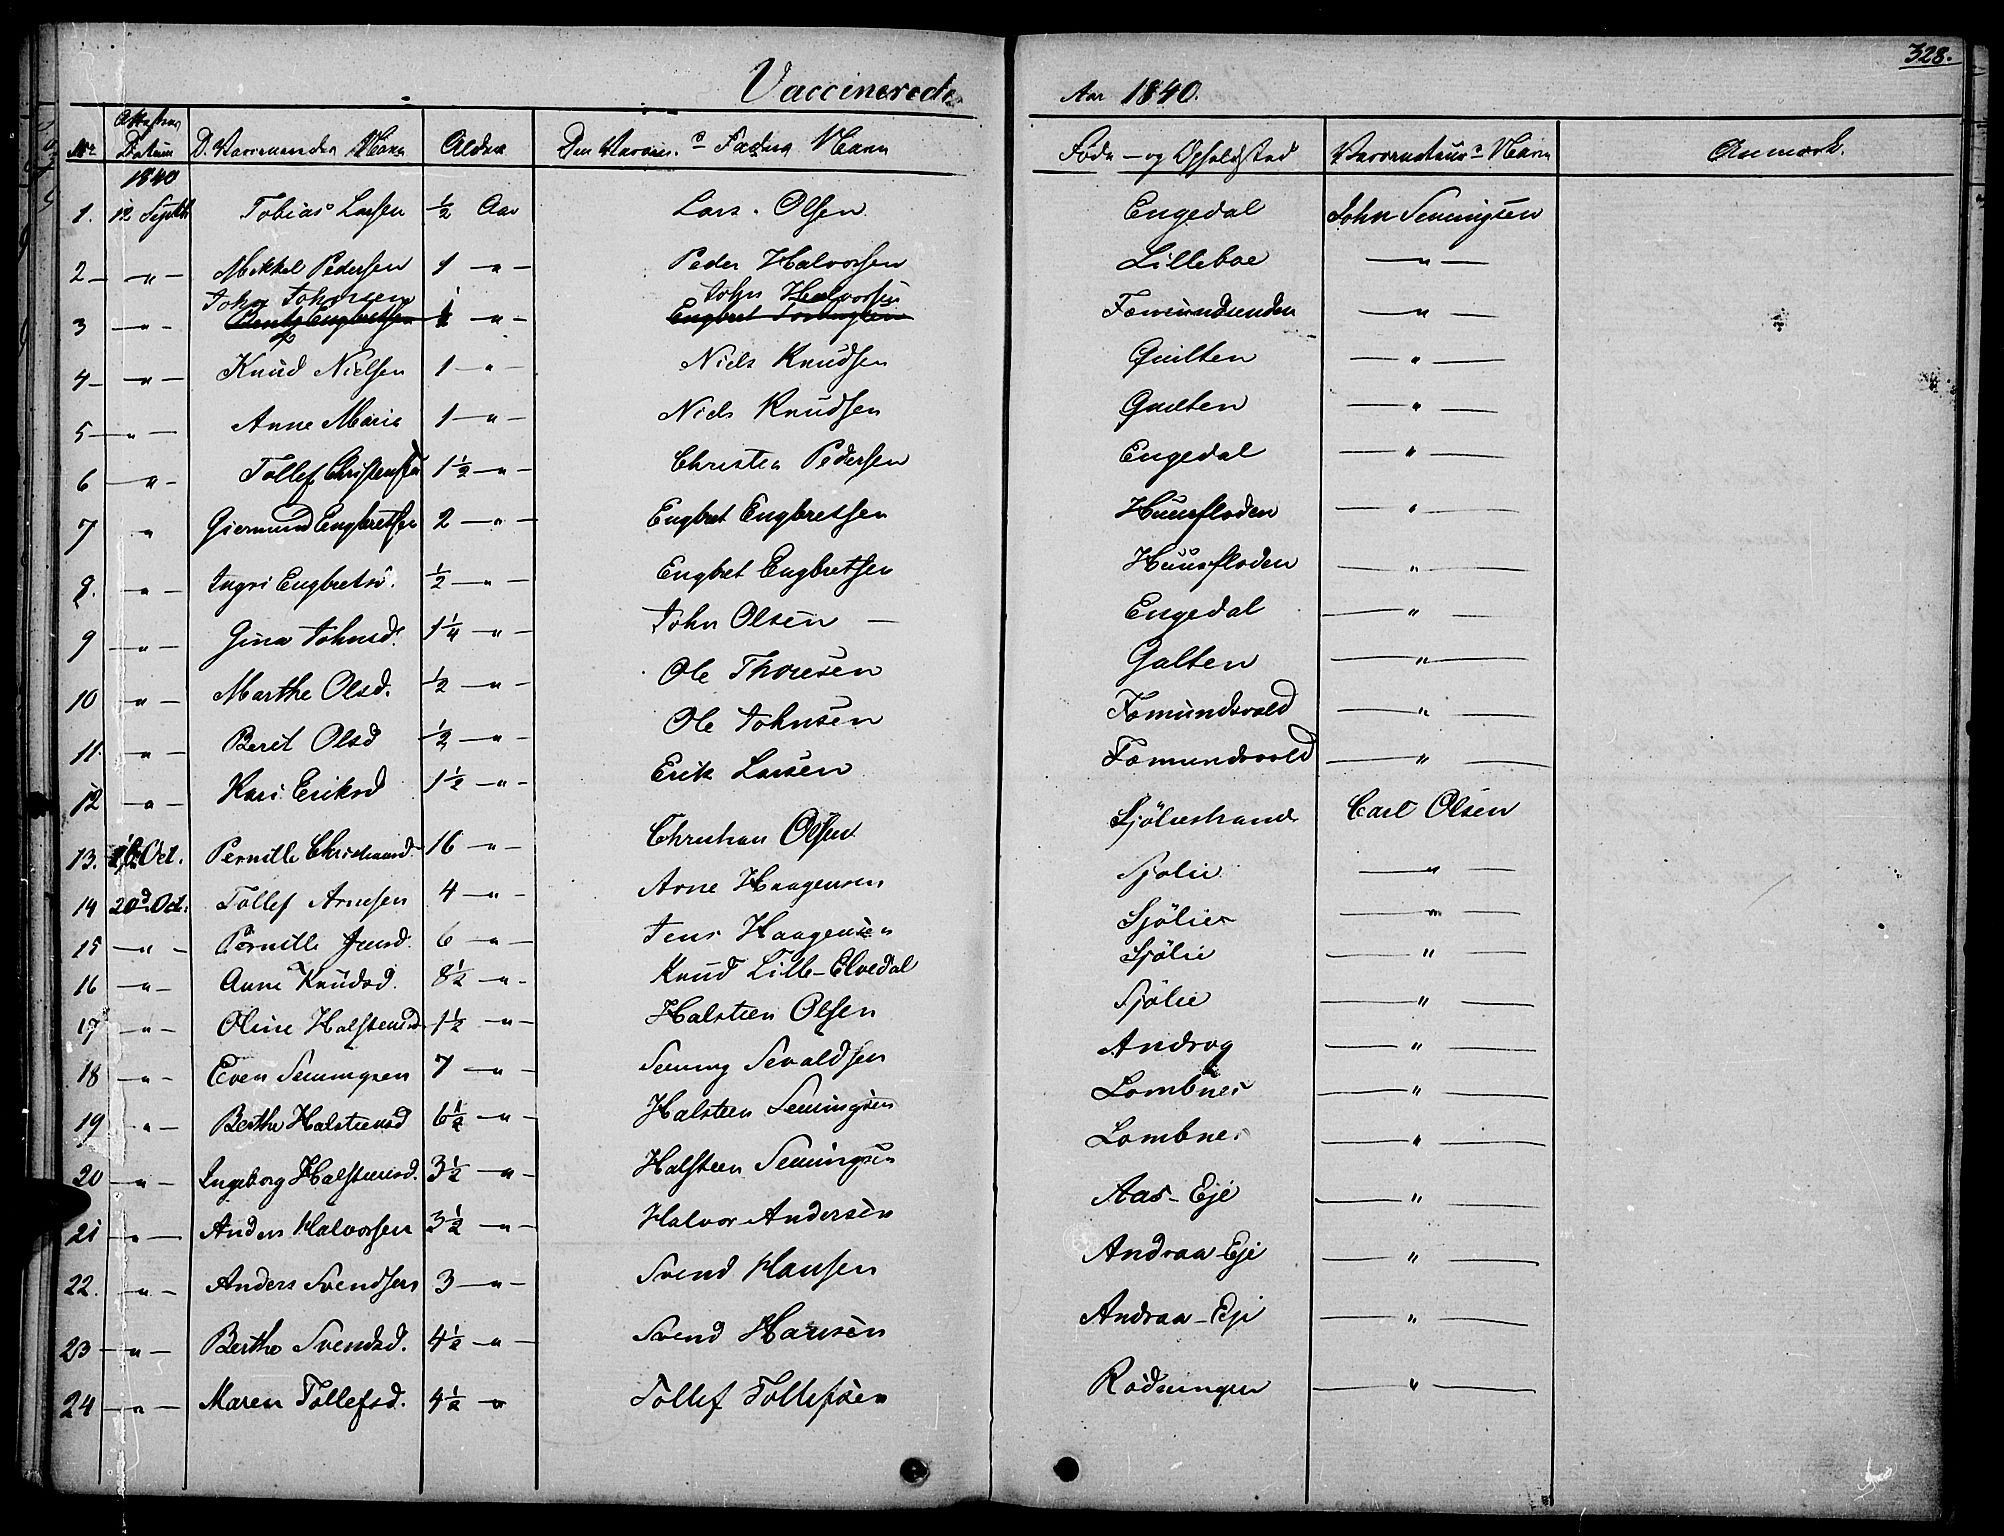 328.
Vaccinerede Aar 1840.
No Attestens Datum D. Vaccinerendes Navn Alder Den Vaccin. Faders Navn Føde - og Opholdsted Vaccinateurs Navn Anmærk.
1840
1. 12 Septbr Tobias Larsen ½ Aar Lars Olsen Engedal John Semingsen
2 — " — Mikkel Pedersen 1 — " — Peder Halvorsen Lilleboe — " —
John Johnsen John Halvorsen
3 — " — Engbretsen — " — Engbret Fæmundsenden — " —
4 — " — Knud Nielsen 1 — " — Niels Knudsen Galten — " —
5 — " — Anne Marie 1 — " — Niels Knudsen Galten — " —
6 — " — Tollef Christensen 1½ — " — Christen Pedersen Engedal — " —
7 " Giermund Engbretsen 2 — " — Engbret Engbretsen Huusfloden — " —
8. — " — Ingri Engbretsd. ½ — " — Engbret Engbretsen Huusfloden — " —
9 — " — Gina Johnsd. 1¼ — " — John Olsen — Engedal — " —
10 — " — Marthe Olsd. ½ — " — Ole Thoresen Galten — " —
11. — " — Berit Olsd ½ — " — Ole Johnsen Fæmundsvold — " —
12 — " — Kari Eriksd 1½ — " — Erik Larsen Fæmundsvold — " —
13. Oct. Pernille Christiansd. 16 — " — Christian Olsen Sjöliestrand Carl Olsen
14 20d. Oct. Tollef Arnesen 4 — " — Arne Haagensen Sjølie — " —
15 — " — Pernille Jensd. 6 — " — Jens Haagensen Sjölie — " —
16 — " — Anne Knudsd. 8½ — " — Knud Lille-Elvedal Sjölie — " —
17 — " — Oline Halsteensd 1½ — " — Halsteen Olsen Sjölie — " —
18 — " — Even Semingsen 7 — " — Seming Sevaldsen Androg — " —
19 — " — Berthe Halsteensd 6½ — " — Halsteen Semingsen Lombnes — " —
20 — " — Ingeborg Halsteensd. 3½ — " — Halsteen Semingsen Lombnes — " —
21 — " — Anders Halvorsen 3½ — " — Halvor Andersen Aas-Eje — " —
22. — " — Anders Svendsen 3 — " — Svend Hansen Andraa-Eje — " —
23 — " — Berthe Svendsd. 4½ — " — Svend Hansen Andraa-Eje — " —
24 — " — Maren Tollefsd. 4½ " Tollef Tollefsen Rödsningen — " —